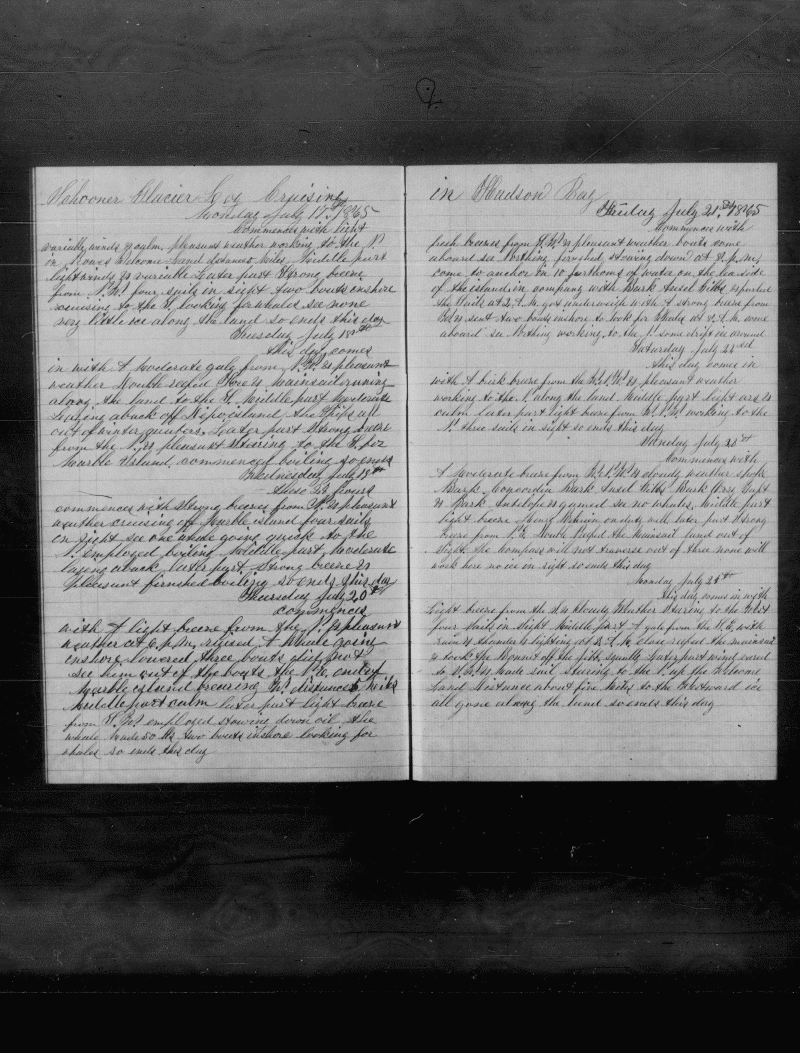 Schooner Glacier Log Cruising
Monday July 17th 1865
Commences with light
variable winds & calm pleasant weather working to the N.
in Rones Welcome Land distance miles Middle part
light winds & variable Later part strong breeze
from N.W. four sails in sight two boats inshore
cruising to the looking for whales see none
very little ice along the land so ends this day
Tuesday July 18th
this day comes
in with A Moderate gale from N. & pleasant
weather Double reefed Fore & mainsail running
along the land to the Middle part Moderate
Laying aback off Depot island the Ships all
out of winter quarters. Later part strong breeze
from the N. & pleasant stearing to the for
Marble Island commenced boiling so ends
Wednesday July 19th
these 24 hours
commences with strong breezes from N. & pleasant
weather cruising off Marble island four sails
in sight see one whale going quick to the
N. employed boiling Middle part Moderate
laying aback later part strong breeze &
pleasant finished boiling so ends this day
Thursday July 20th
commences
with A light breeze from the N. & pleasant
weather at 6 p.m. raised A Whale going
inshore lowered three boats
see him out of the boats the N.E. end of
Marble island bearing N. distance 5 miles
middle part calm later part light breeze
from employed stowing down oil the
whale made 80 bbs two boats inshore looking for
whales so ends this day
in Hudson Bay
Friday July 21st 1865
Commences with
fresh breezes from & pleasant weather boats come
aboard see Nothing finished stowing down at 8 p.m.
come to anchor in 10 farthoms of water on the lea side
of the island in company with Bark Ansel Gibbs
the at 2 A.M. got underweigh with A strong breeze from
& sent two boats inshore to look for Whales at 8 A.M. come
aboard see Nothing working to the N. some drift ice around
Saturday July 22nd
this day comes in
with A brisk breeze from the & pleasant weather
working to the N. along the land Middle part light airs &
calm Later part light breeze from working to the
N. three sails in sight so ends this day
Monday July 23th
Commences with
A Moderate breeze from & cloudy weather spoke
Bark Concordia Bark Ansel Gibbs Bark Orray Taft
& Bark Antelope & gamed see no whales. Middle part
light breeze Henry on duty well later part strong
breeze from Double Reefed the mainsail land out of
Sight the Compass will not traverse out of three none will
work here no ice in sight so ends this day
Monday July 24th
this day comes in with
light breeze from the & Cloudy Weather Stearing to the West
four Sails in Sight Middle part A gale from the N.E. with
rain & thunder & lighting at 8 A.M. close reefed the mainsail
& took the Bonnet off the jibb. squally Later part wind
to & made sail stearing to the N. up the Welcome
Land distance about five Miles to the Westward ice
all gone along the land so ends this day